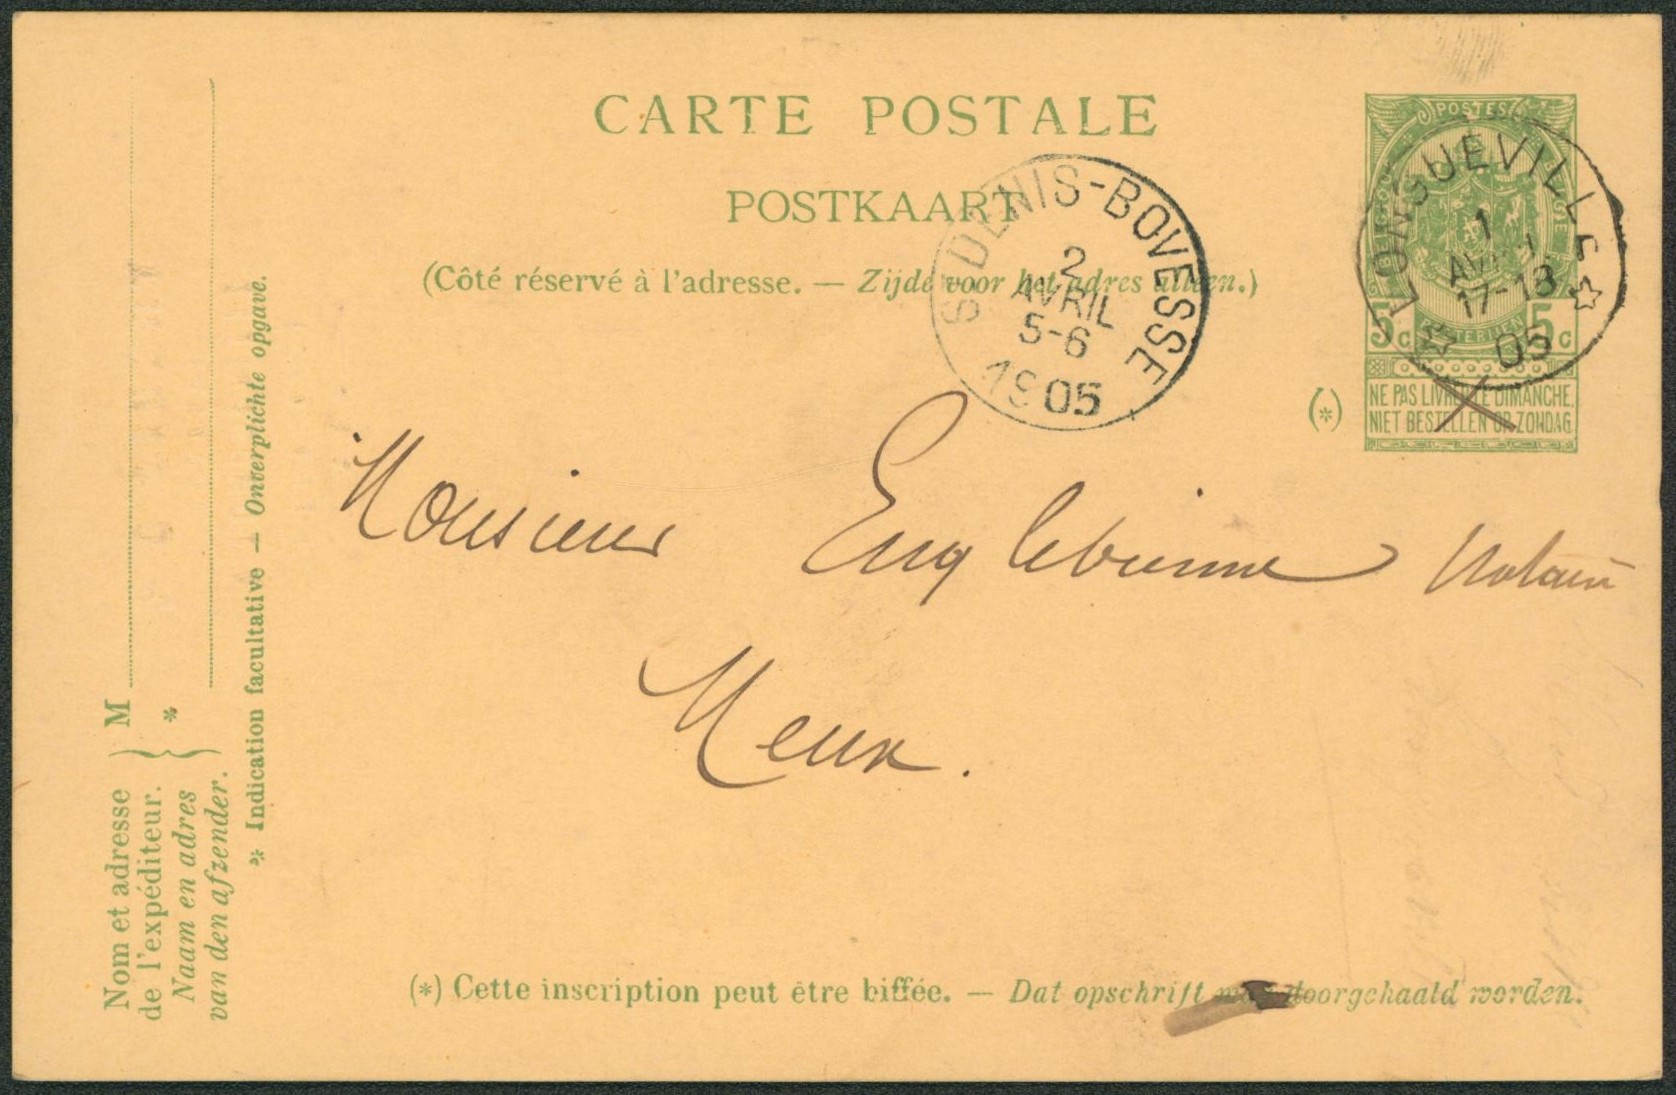 CARTE POSTALE
POSTKAART
(Côté réservé à l'adresse. — Zijde voor het adres alleen.)
POSTES
POSTERIJEN
5 c 5 c
NE PAS LIVRER LE DIMANCHE.
NIET BESTELLEN OP ZONDAG.
(*)
LONGUEVILLE
1
AVRIL
17-18
05
ST DENIS-BOVESSE
2
AVRIL
5-6
1905
Monsieur Englebienne Notaire
Meux.
M
Nom et adresse
de l'expéditeur.
Naam en adres
van den afzender.
*
* Indication facultative — Onverplichte opgave.
(*) Cette inscription peut être biffée. — Dat opschrift mag doorgehaald worden.